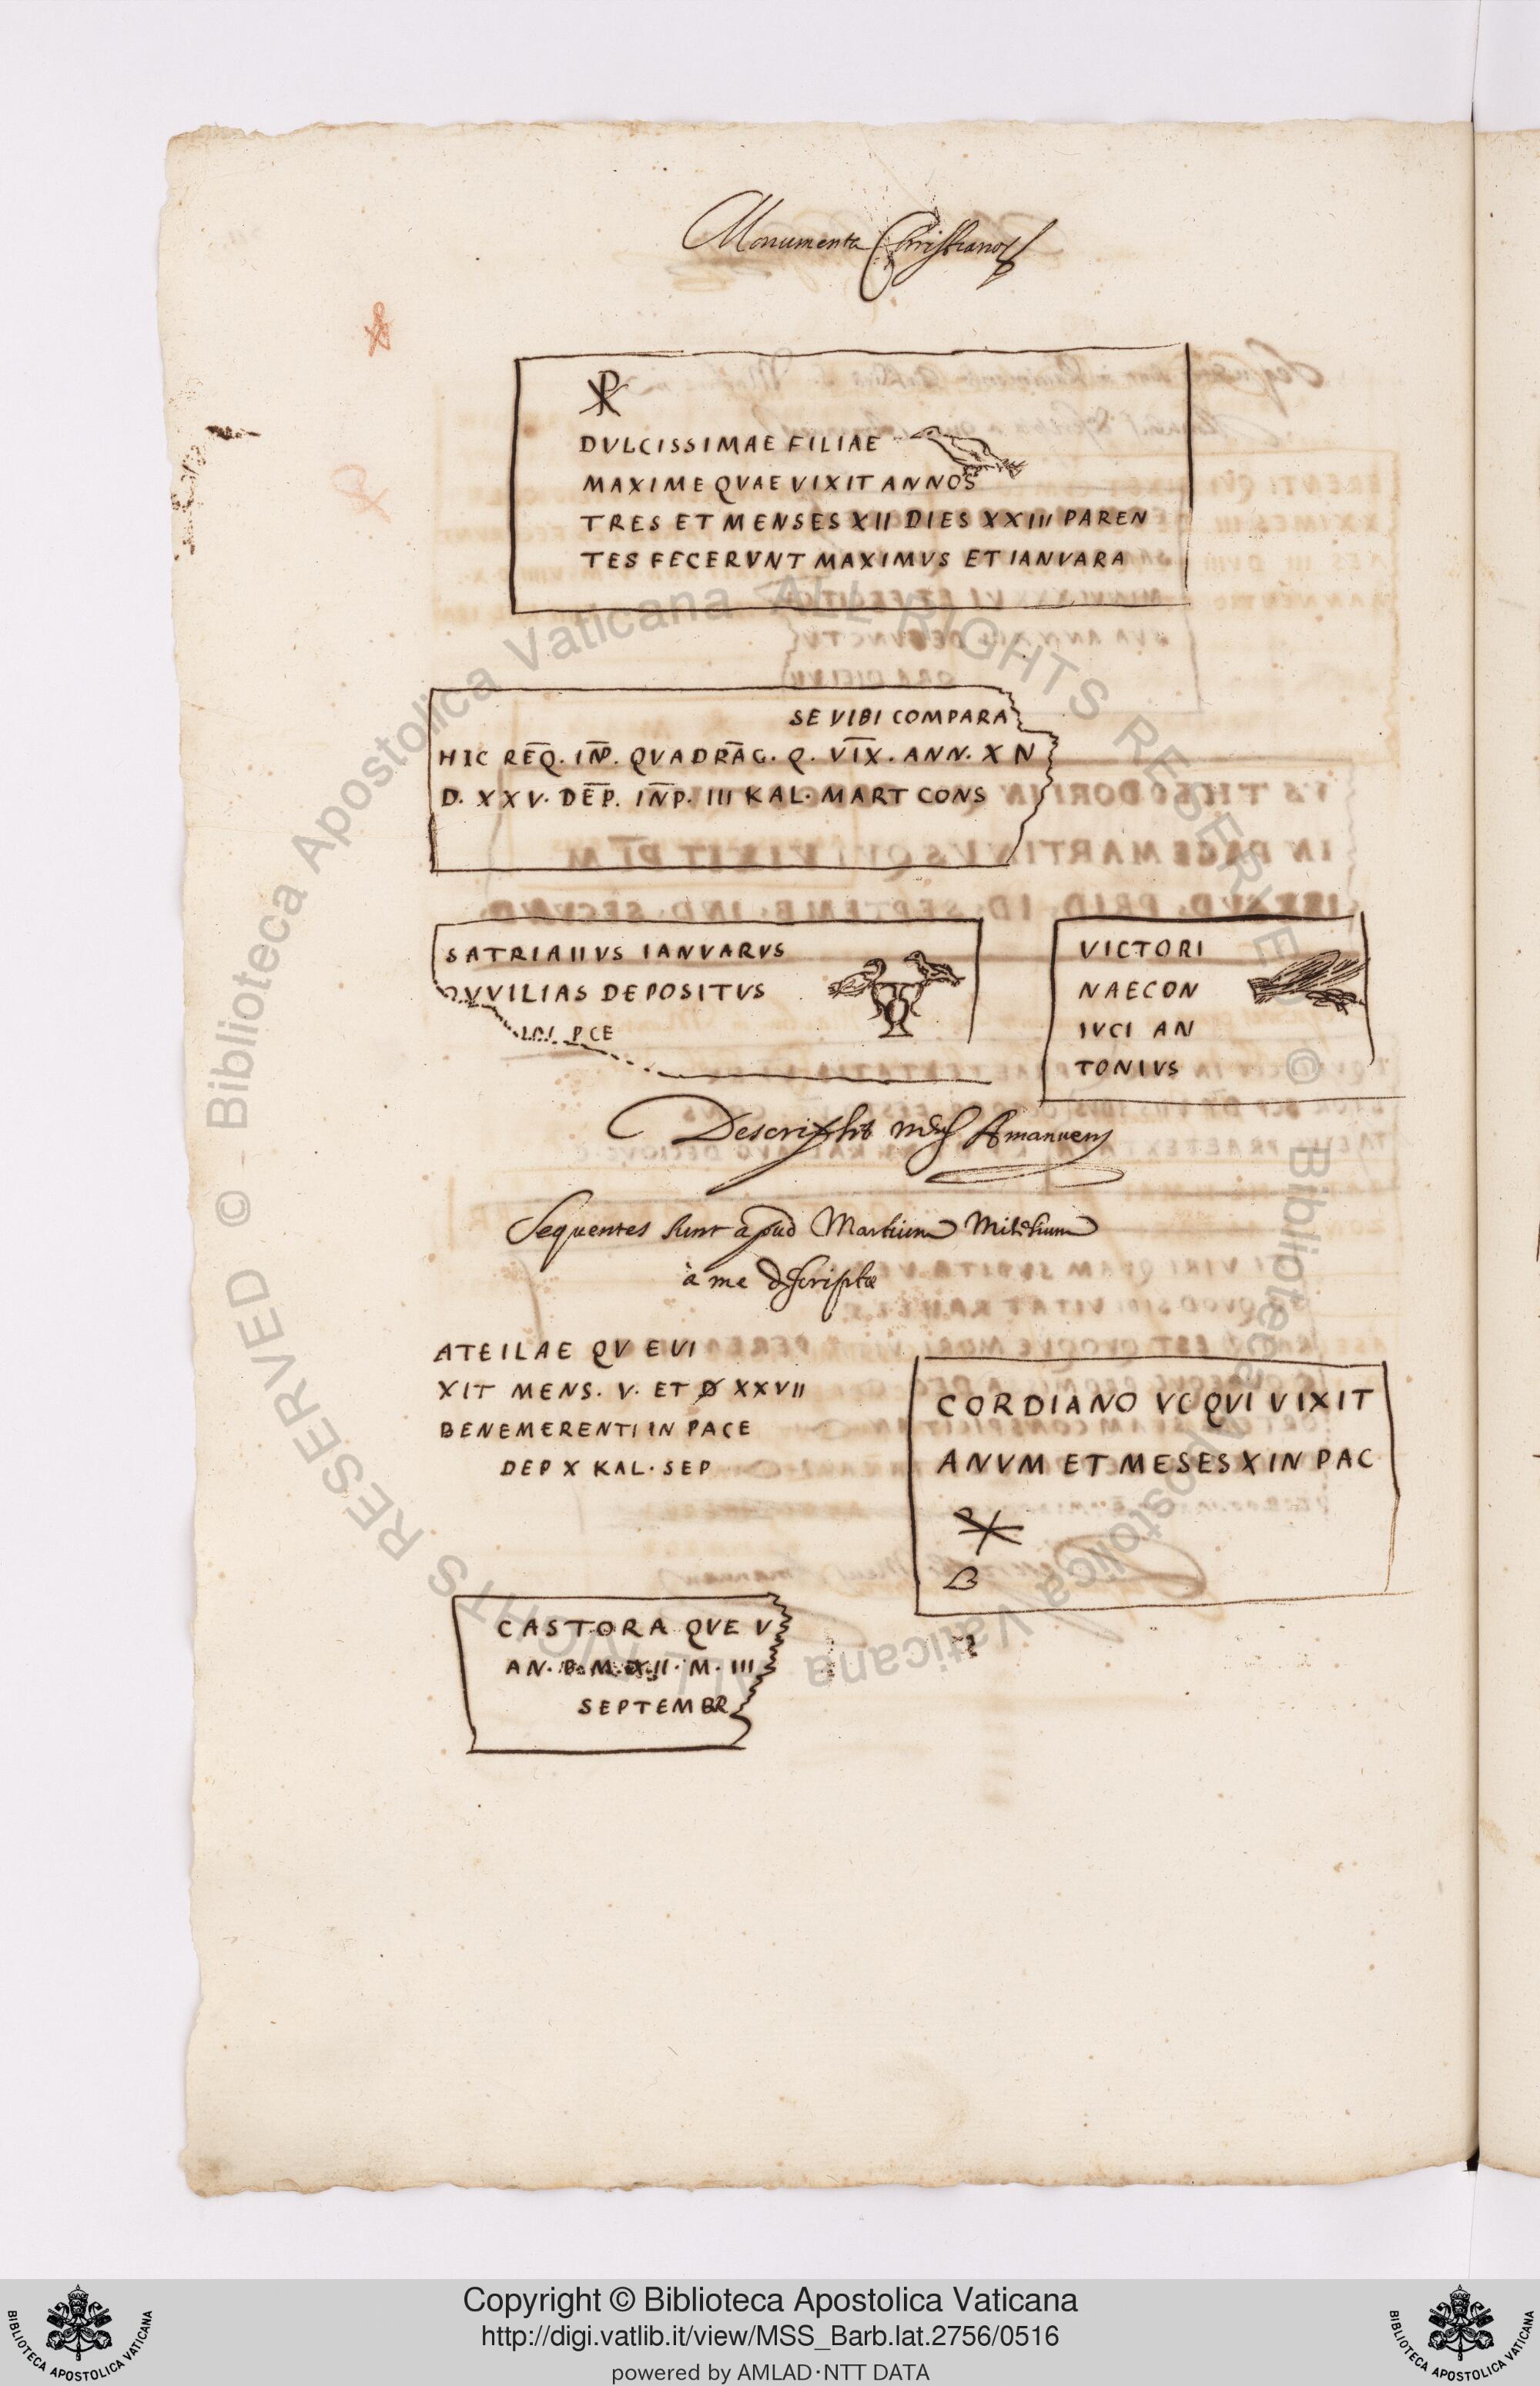 Monumenta Christianoꝝ
☧
DVLCISSIMAE FILIAE
MAXIME QVAE VIXIT ANNOS
TRES ET MENSES XII DIES XXIII PAREN
TES FECERVNT MAXIMVS ET IANVARA
SE VIBI COMPARA
HIC REQ̅. IN̅P. QVADRA̅G. Q. VI̅X. ANN. X N
D. XXV. DE̅P. IN̅P. III KAL. MART CONS
SATRIAIIVS IANVARVS
VVILIAS DEPOSITVS
PCE
VICTORI
NAECON
IVCI AN
TONIVS
Descripsit meus Amanuens
Sequentes sunt apud Martium Milesium
à me descriptæ
ATEILAE QV EVI
XIT MENS. V. ET D XXVII
BENEMERENTI IN PACE
DEP X KAL. SEP
CORDIANO VC QVI VIXIT
ANVM ET MESES X IN PAC
CASTORA QVE V
AN. B. M. XII. M. III
SEPTEMBR
© Biblioteca Apostolica Vaticana - ALL RIGHTS RESERVED
© Biblioteca Apostolica Vaticana - ALL RIGHTS RESERVED
Copyright © Biblioteca Apostolica Vaticana
http://digi.vatlib.it/view/MSS_Barb.lat.2756/0516
powered by AMLAD·NTT DATA
BIBLIOTECA APOSTOLICA VATICANA
BIBLIOTECA APOSTOLICA VATICANA